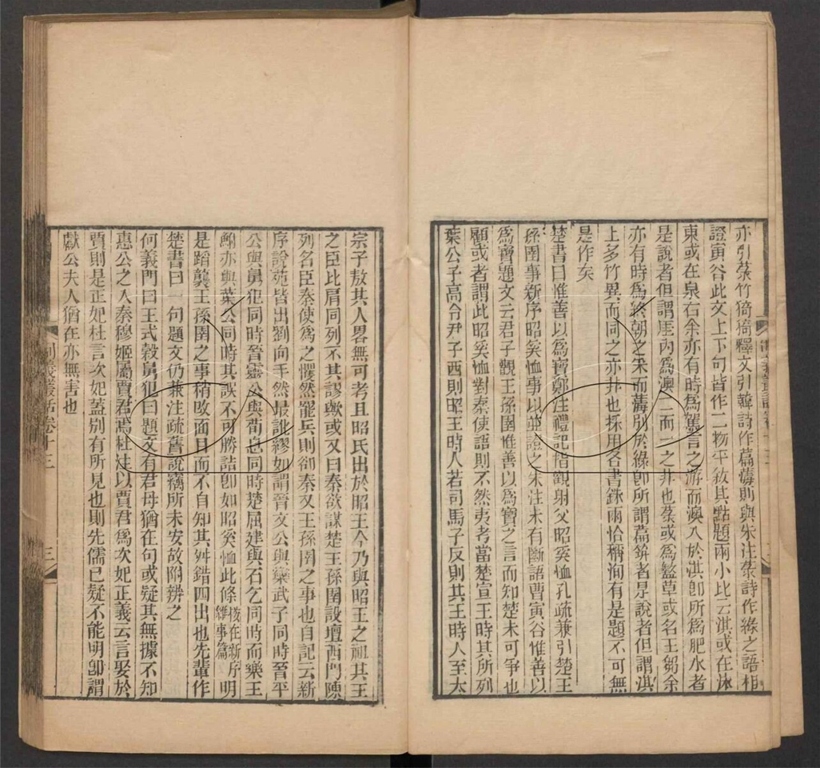 亦引菉竹猗猗釋文引韓詩作薗薄則與朱注菉詩作綠之語相
證寅谷此文上下句皆作二物平敘其點題兩小比云淇或在泳
東或在泉右余亦有時為駕言之游而澳入於淇卽所為肥水者
是說者但謂厓內為澳二而一之非也菉或為藍草或名王芻余
亦有時為終朝之采而薄別於綠卽所謂萹筑者是說者但謂淇
上多竹異而同之亦非也採用各書銖兩恰稱洵有是題不可無
是作矣
楚書曰惟善以為寶鄭注禮記指觀射父昭奚恤孔疏兼引楚王
孫圉事新序昭奚恤事以並證之朱注未有斷語曹寅谷惟善以
為寶題文云君子觀王孫圉惟善以為寶之言而知楚未可爭也
顧或者謂此昭奚恤對秦使語則不然夷考當楚宣王時其所列
葉公子高令尹子西則昭王時人若司馬子反則共王時人至太
宗子敖其人畧無可考且昭氏出於昭王今乃與昭王之祖共王
之臣比肩同列不其謬歟或又曰秦欲謀楚王孫圉設壇西門陳
列名臣秦使為之懼然罷兵則卻秦又王孫圉之事也自記云新
序說苑皆出劉向手然最訛繆如謂晉文公與欒武子同時晉平
公與舅犯同時晉靈公與荀息同時楚屈建與石乞同時而樂王
鮒亦與葉公同時其誤不可勝詰卽如昭奚恤此條後在新序雜事篇明
是蹈襲王孫圉之事稍改面目而不自知其舛錯四出也先輩作
楚書曰一句題文仍兼注疏舊說竊所未安故附辨之
何義門曰王式穀舅犯曰題文有君母猶在句或疑其無據不知
惠公之入秦穆姬屬賈君焉杜注以賈君為次妃正義云言娶於
賈則是正妃杜言次妃蓋別有所見也則先儒已疑不能明卽謂
獻公夫人猶在亦無害也
制義叢話卷十三
三